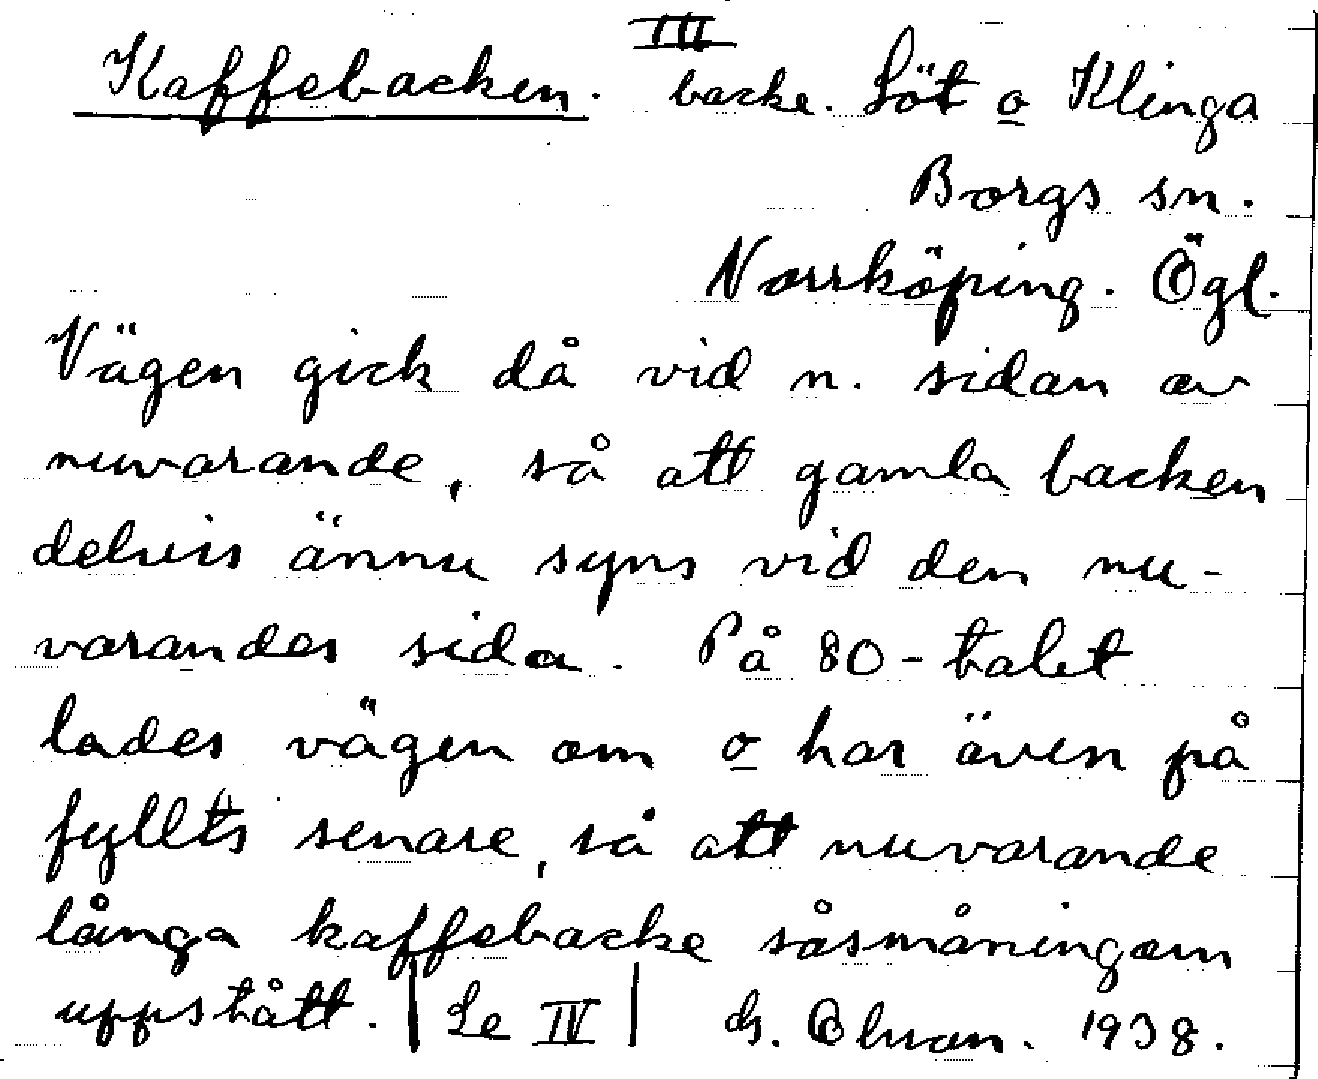 III
Kaffebacken. backe. Löt o Klinga
Borgs sn.
Norrköping. Ögl.
Vägen gick då vid n. sidan av
nuvarande, så att gamla backen
delvis ännu syns vid den nu-
varandes sida. På 80-talet
lades vägen om o har även på
fyllts senare, så att nuvarande
långa kaffebacke såsmåningom
uppstått. | Se IV | 1938.